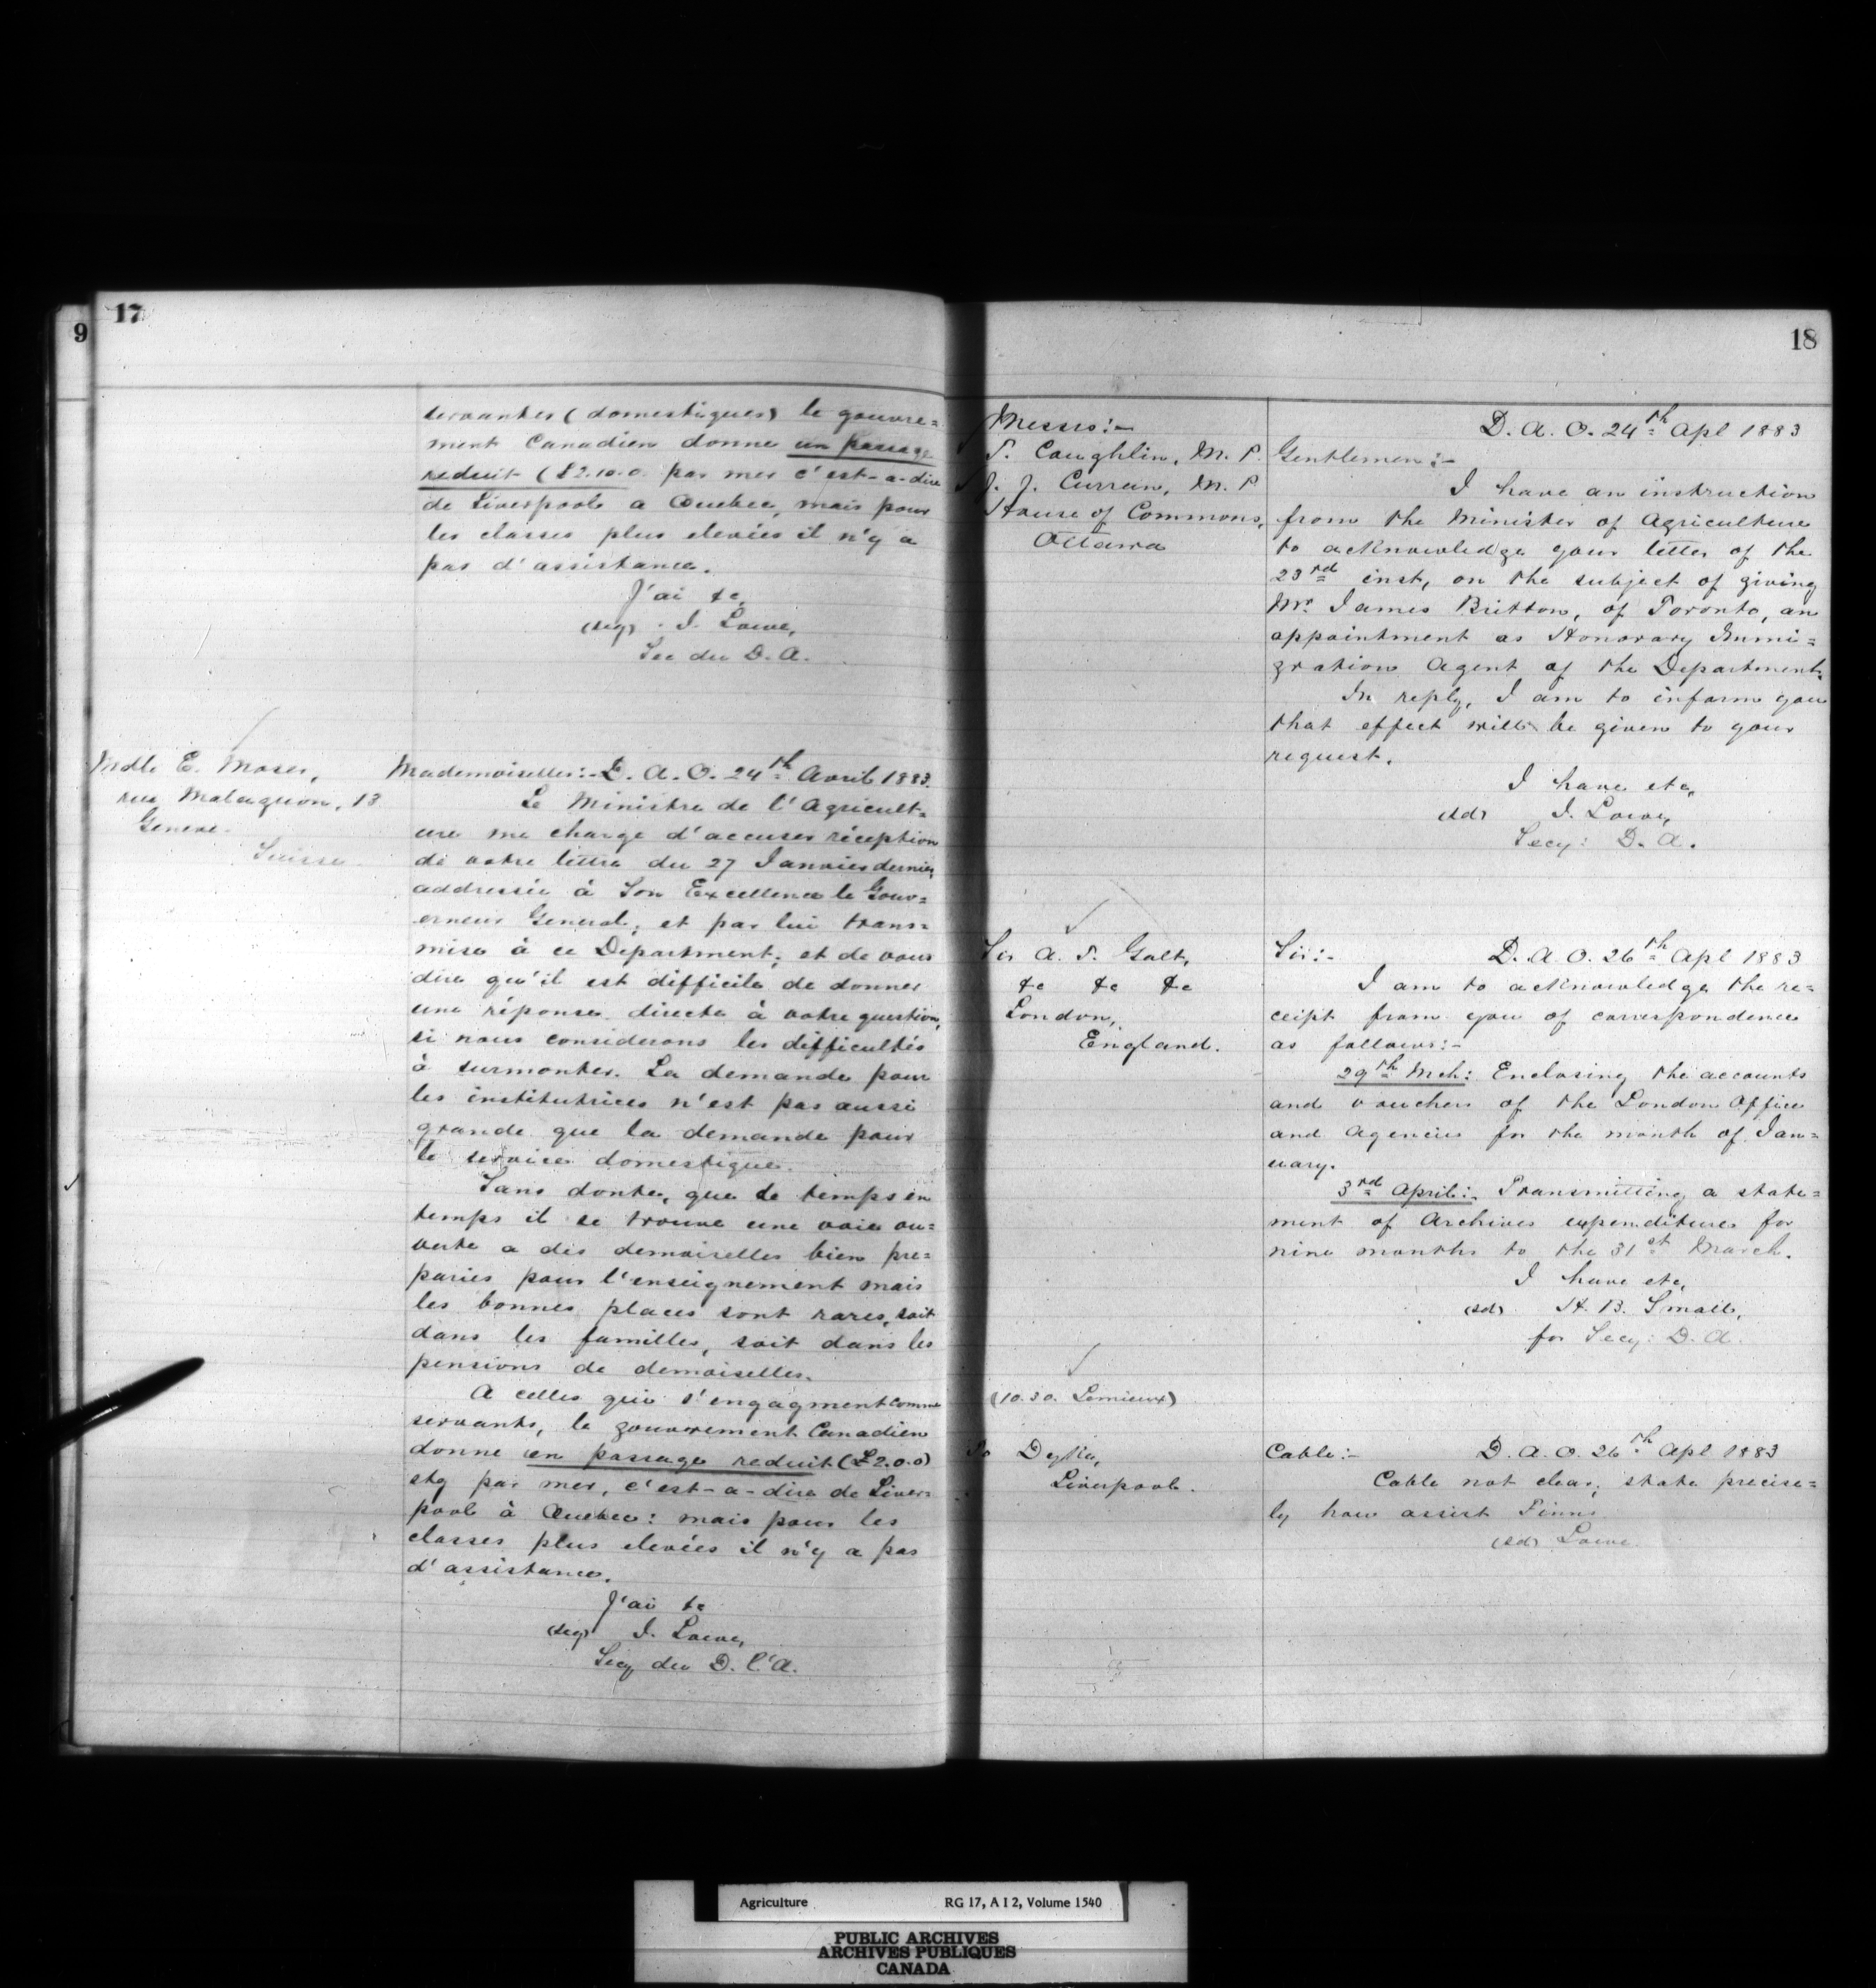 9
17
servantes (domestiques) le gouvre=
ment Canadien donne un passage
reduit (£2.10.0. par mer c'est-a-dire
de Liverpool a Quebec, mais pour
les classes plus elevées il n'y a
pas d'assistance.
J'ai &c,
(sig) J. Lowe,
Sec du D. A.
Mdlle E. Moser,
rue Malagnou, 13
Geneve.
Suisse.
Mademoiselle:- D. A. O. 24th Avril 1883.
Le Ministre de l'Agricult=
ure me charge d'accuser réception
de votre lettre du 27 Janvier dernier,
addressée à Son Excellence le Gouv=
erneur General; et par lui trans=
mise à ce Department; et de vous
dire qu'il est difficile de donner
une réponse directe à votre question,
si nous considerons les difficultés
à surmonter. La demande pour
les institutrices n'est pas aussi
grande que la demande pour
le service domestique.
Sans doute, que de temps en
temps il se trouve une voie ou=
verte a des demoiselles bien pre=
parées pour l'enseignement mais
les bonnes places sont rares, soit
dans les familles, soit dans les
pensions de demoiselles.
A celles qui s'engagment comme
servants, le gouvernment Canadien
donne un passage reduit (£2.0.0)
stg par mer, c'est-a-dire de Liver=
pool à Quebec: mais pour les
classes plus elevées il n'y a pas
d'assistance.
J'ai &c
(sig) J. Lowe,
Secy du D. l'A.
18
Messrs:-
T. Coughlin, M. P.
J. J. Curran, M. P.
House of Commons,
Ottawa
D. A. O. 24th Apl 1883
Gentlemen:-
I have an instruction
from the Minister of Agriculture
to acknowledge your letter of the
23rd inst, on the subject of giving
Mr. James Britton, of Toronto, an
appointment as Honorary Immi=
gration Agent of the Department.
In reply, I am to inform you
that effect will be given to your
request.
I have etc,
(sd) J. Lowe,
Secy: D. A.
Sir A. T. Galt,
&c &c &c
London,
England.
Sir:- D. A. O. 26th Apl 1883
I am to acknowledge the re=
ceipt from you of correspondence
as follows:-
29th Mch: Enclosing the accounts
and vouchers of the London Office
and Agencies for the month of Jan=
uary.
3rd April:- Transmitting a state=
ment of Archives expenditures for
nine months to the 31st March.
I have etc,
(sd) H. B. Small,
for Secy: D. A.
(10.30. Lemieux)
To Dyke,
Liverpool.
Cable:- D. A. O. 26th Apl 1883
Cable not clear; state precise=
ly how assist Finns
(sd) Lowe.
Agriculture RG 17, A I 2, Volume 1540
PUBLIC ARCHIVES
ARCHIVES PUBLIQUES
CANADA